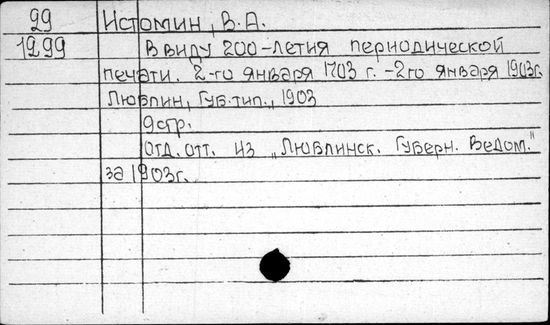 99 Истомин, В.А.
1299 Ввиду 200-летия периодической
печати. 2-го января 1703 г. -2го января 1903г.
Люблин, Губ.тип., 1903
9стр.
Отд. отт. из „Люблинск. Губерн. Ведом."
за 1903г.